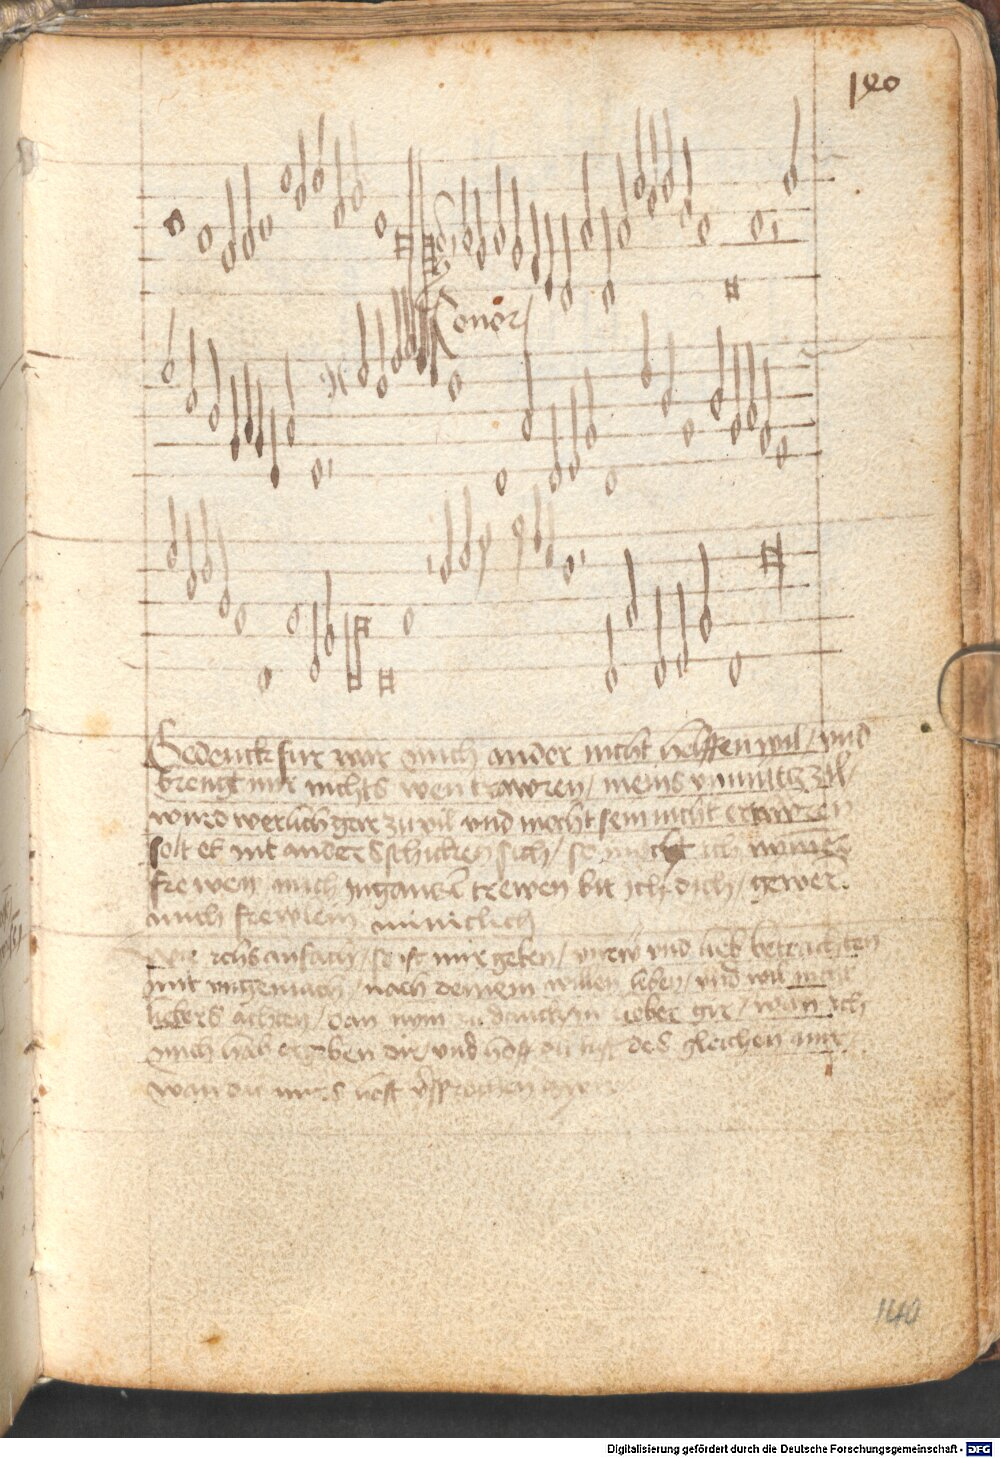 140
Tenor
Gedenck fur war mich ander nicht helffen wil / und
brengt mir nichts wen trawren / meins unmutz zil /
wurd werlich gar zu vil und mocht sein nicht
solt es mit anders schicken sich / so ich
frewen mich in gantzen trewen bit ich dich / gewer
mich frewlein miniclich
ichs anfach / so ist mir geben / und lieb betrachten
mit ungemach / nach deinem willen leben / und wil nicht
liebers achten / dan lieber gir / wan ich
mich hab ergeben dir / und hoff du tust des gleichen mir /
wan du mirs host
140
Digitalisierung gefördert durch die Deutsche Forschungsgemeinschaft - DFG